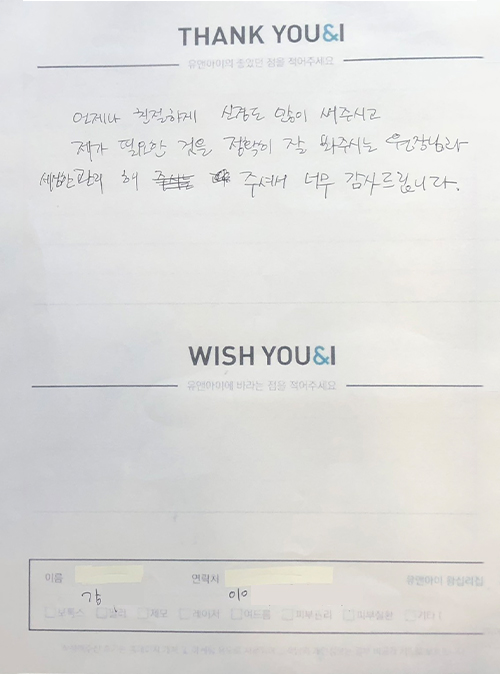 THANK YOU&I
유앤아이의 좋았던 점을 적어주세요
언제나 친절하게 신경도 많이 써주시고
제가 필요한 것을 정확히 잘 봐주시는 원장님과
세심한 관리 해 주셔서 너무 감사드립니다.
WISH YOU&I
유앤아이에 바라는 점을 적어주세요
이름 연락처 유앤아이 클리닉
강 이0
보톡스 필러 제모 레이저 여드름 피부관리 피부질환 기타